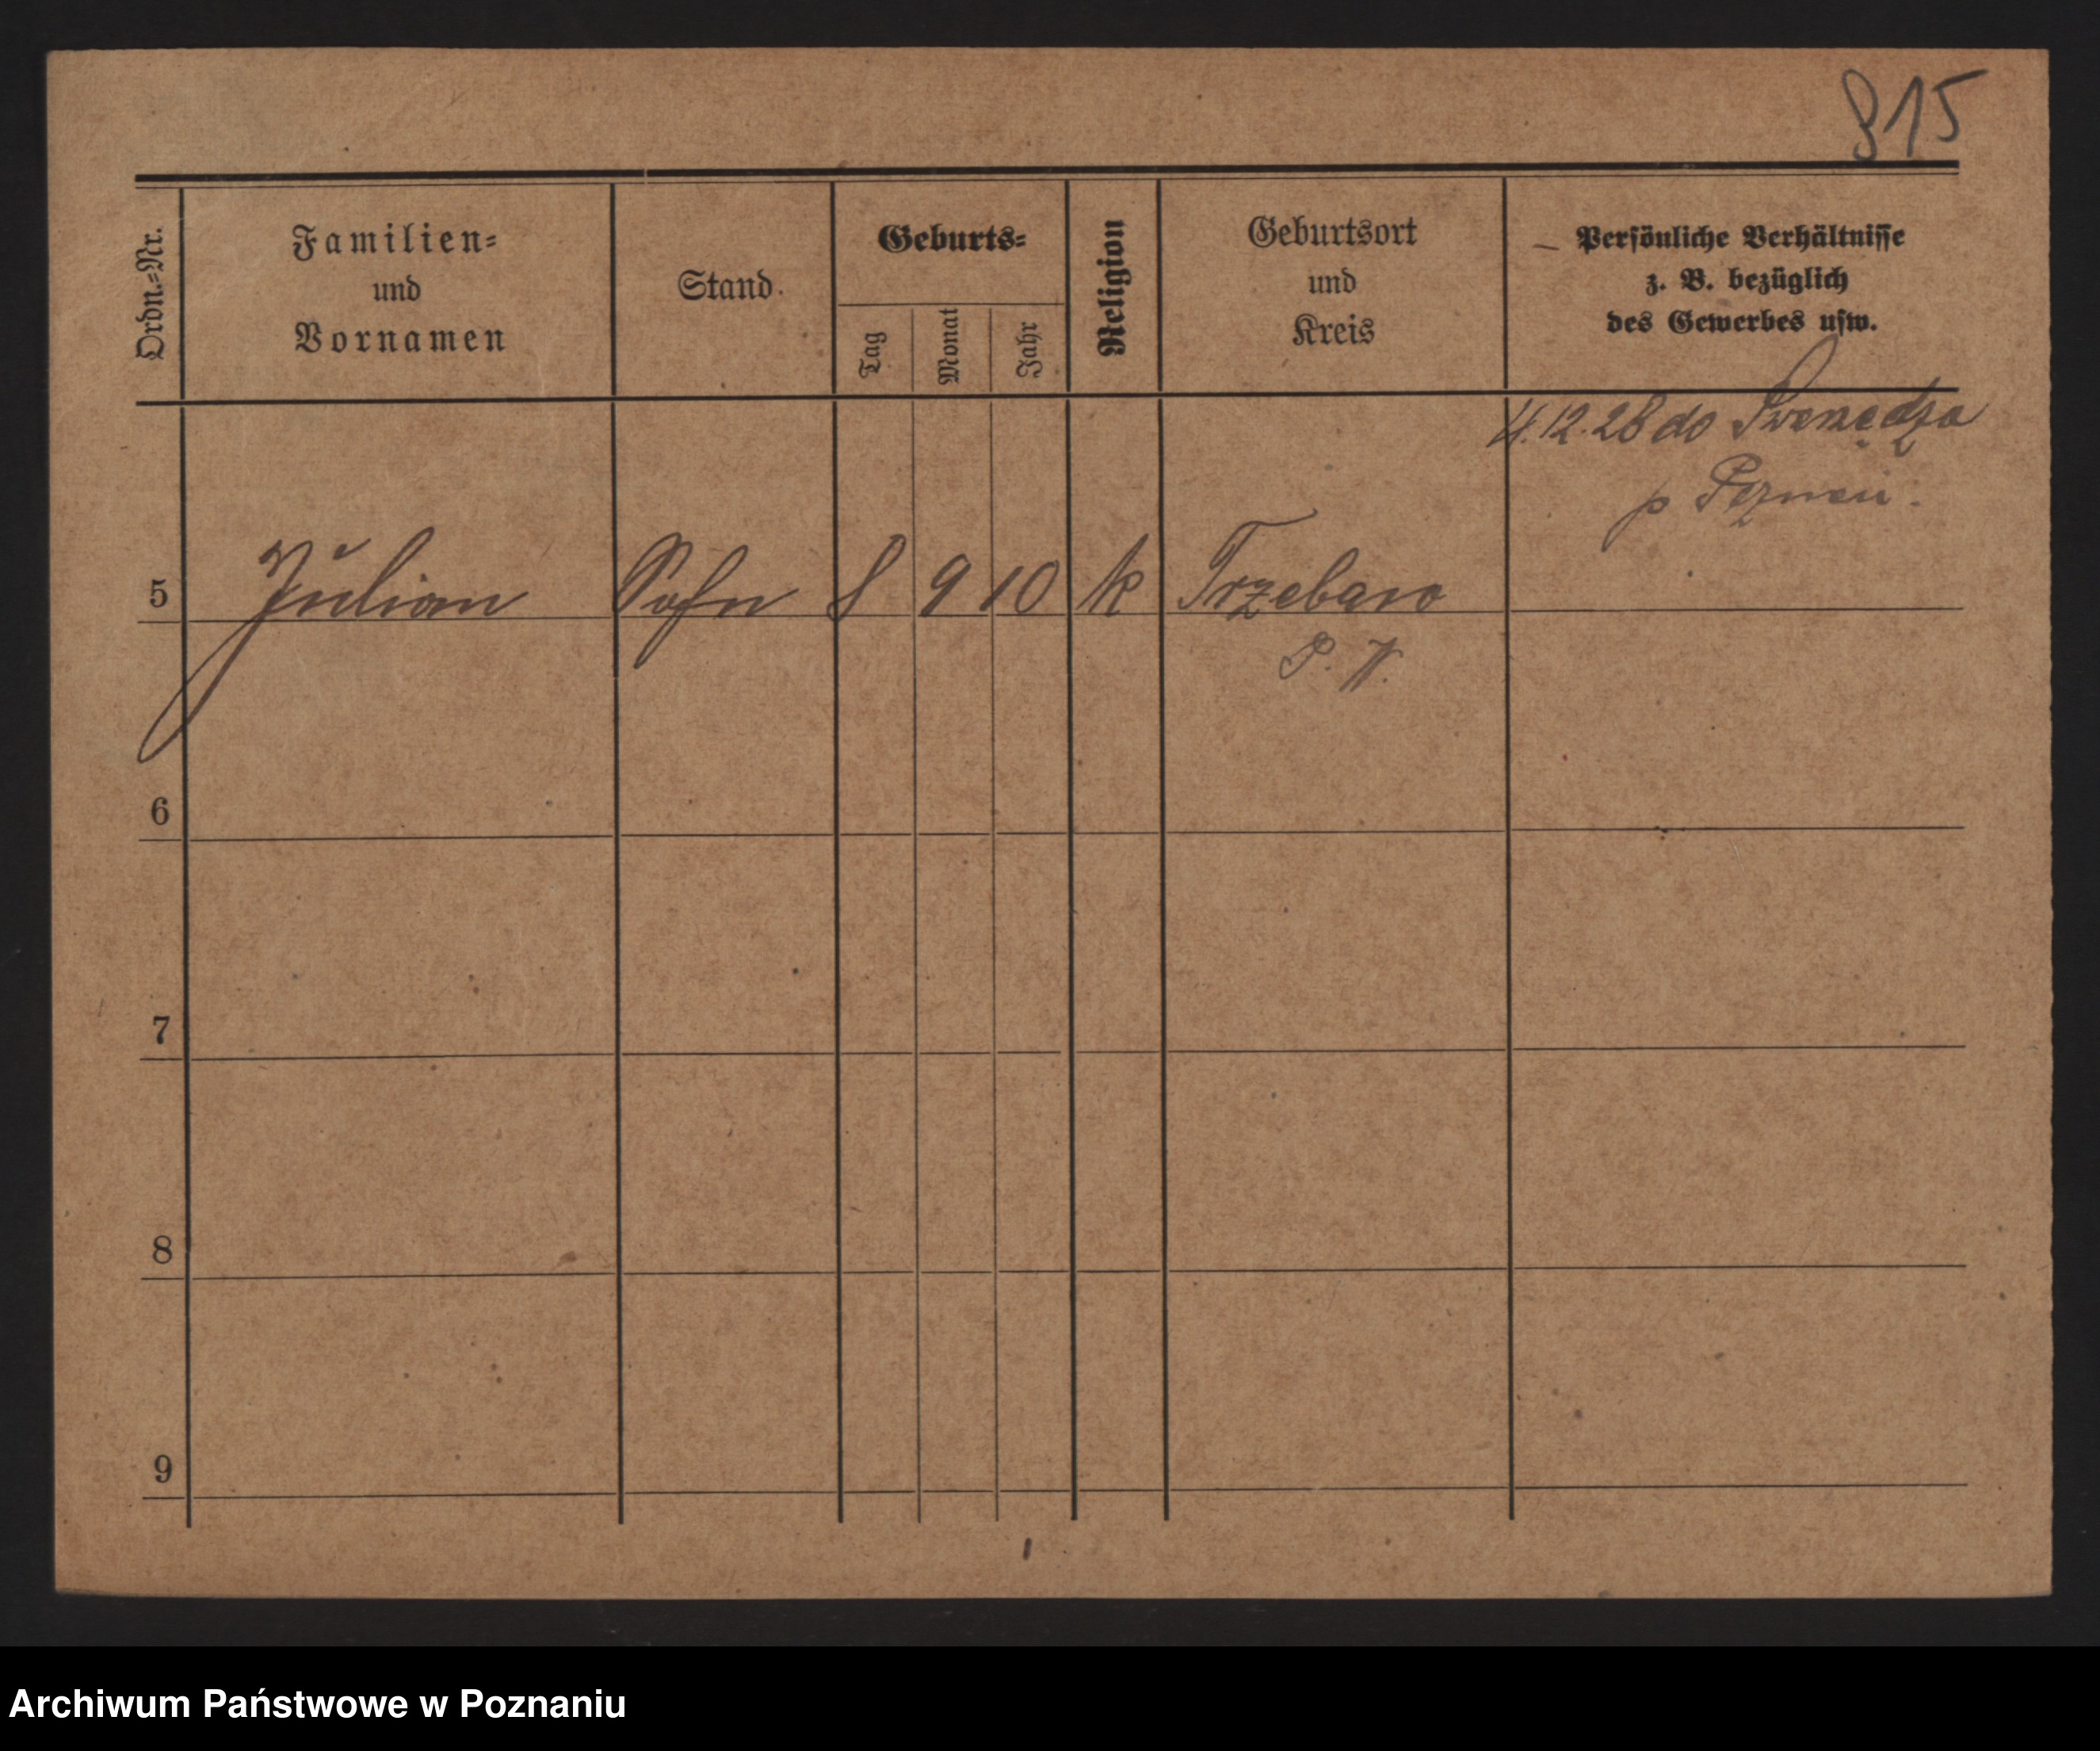 815
Ordn.-Nr.
Familien-
und
Vornamen
Stand.
Geburts-
Tag
Monat
Jahr
Religion
Geburtsort
und
Kreis
Persönliche Verhältnisse
z. B. bezüglich
des Gewerbes usw.
4.12.28 do
p
5 Julian Sohn 8 9 10 k Trzebaw
P. W.
6
7
8
9
Archiwum Państwowe w Poznaniu